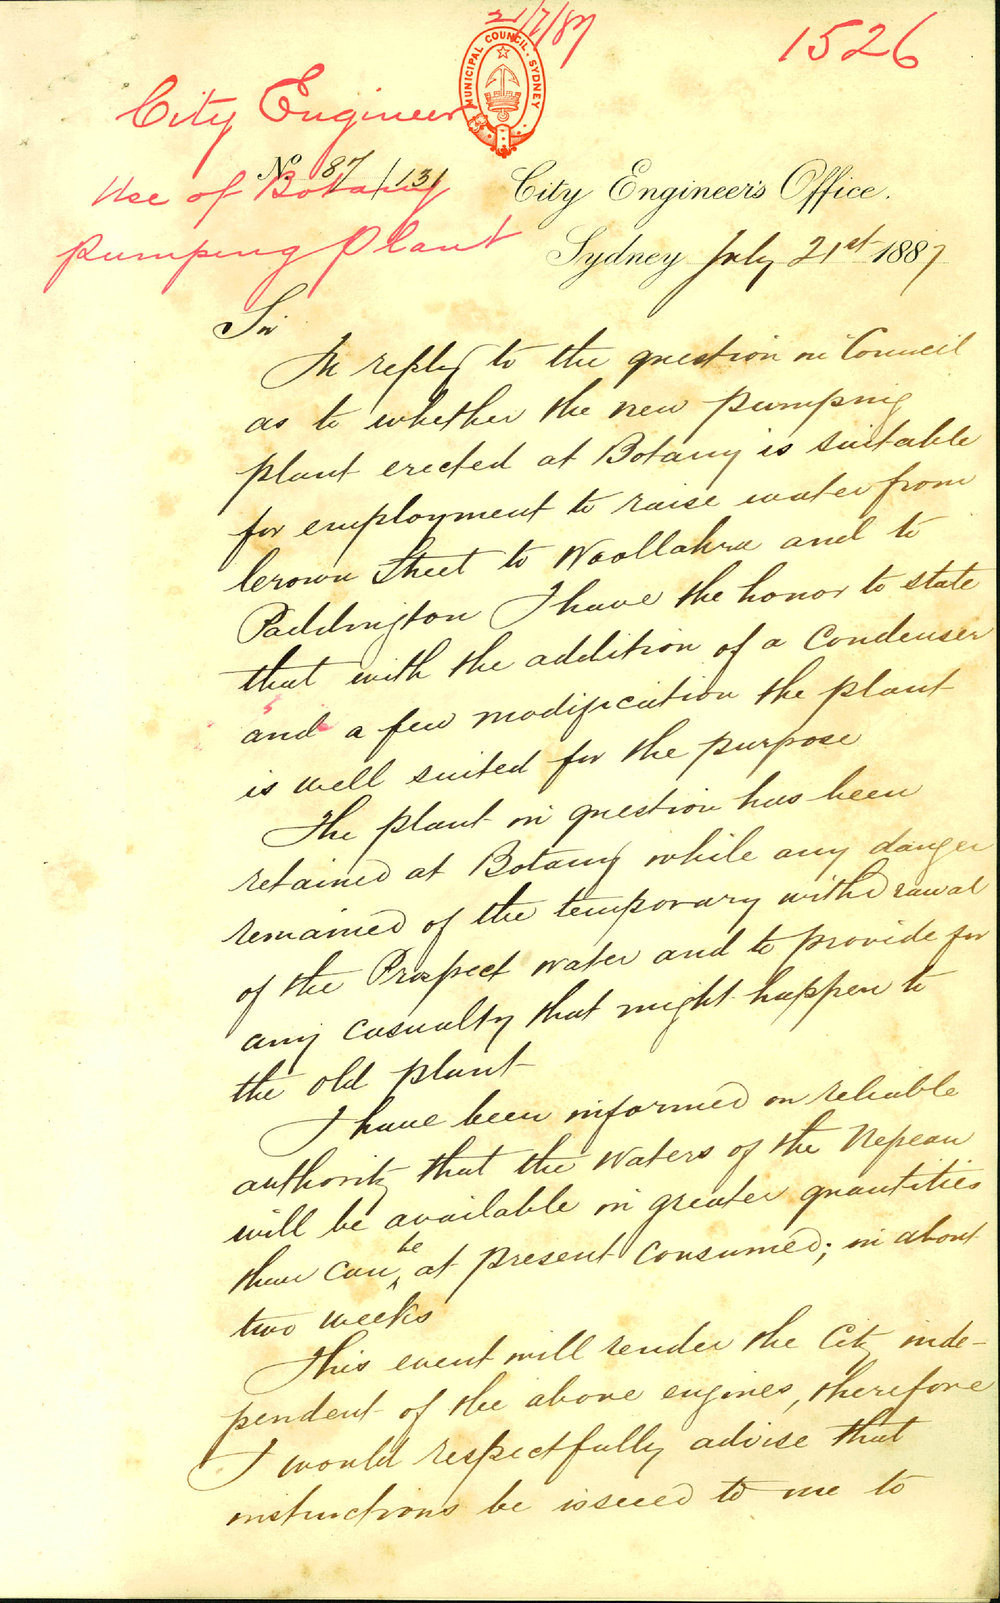 21/7/87
1526
MUNICIPAL COUNCIL. SYDNEY
City Engineer
No 87/131
Use of Botany
pumping plant
City Engineer's Office.
Sydney July 21st 1887
Sir
In reply to the question in Council
as to whether the new pumping
plant erected at Botany is suitable
for employment to raise water from
Crown Street to Woollahra and to
Paddington I have the honor to state
that with the addition of a Condenser
and a few modification the plant
is well suited for the purpose
The plant in question has been
retained at Botany while any danger
remained of the temporary withdrawal
of the Prospect water and to provide for
any casualty that might happen to
the old plant
I have been informed on reliable
authority that the Waters of the Nepean
will be available in greater quantities
than can be at present consumed; in about
two weeks
This event will render the City inde-
pendent of the above engines, therefore
I would respectfully advise that
instructions be issued to me to